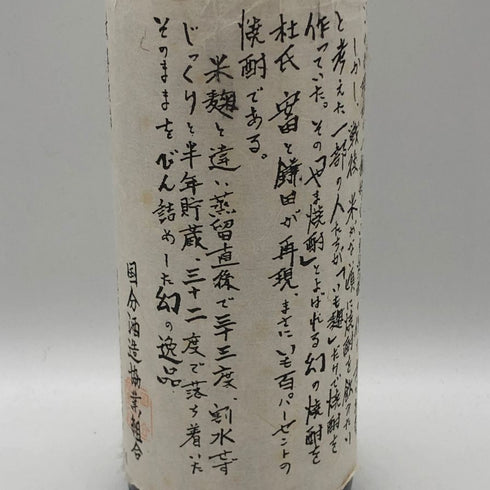 しかし、戦後、米がない頃に焼酎を飲みたい
と考えた一部の人たちが「いも麹」だけで焼酎を
作っていた。その「やま焼酎」とよばれる幻の焼酎を
杜氏 安田と鎌田が再現、まさにいも百パーセントの
焼酎である。
米麹と違い蒸留直後で三十三度、割水せず
じっくりと半年貯蔵、三十二度で落ち着いた
そのままをびん詰めした幻の逸品
国分酒造協業組合